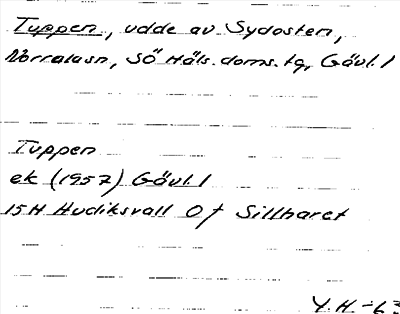 Tuppen, udde av Sydosten,
Norralasn, SÖ Häls. doms. tg, Gävl. l
Tuppen
ek (1957) Gävl. l
15H Hudiksvall Of Sillharet
Y. H. -63